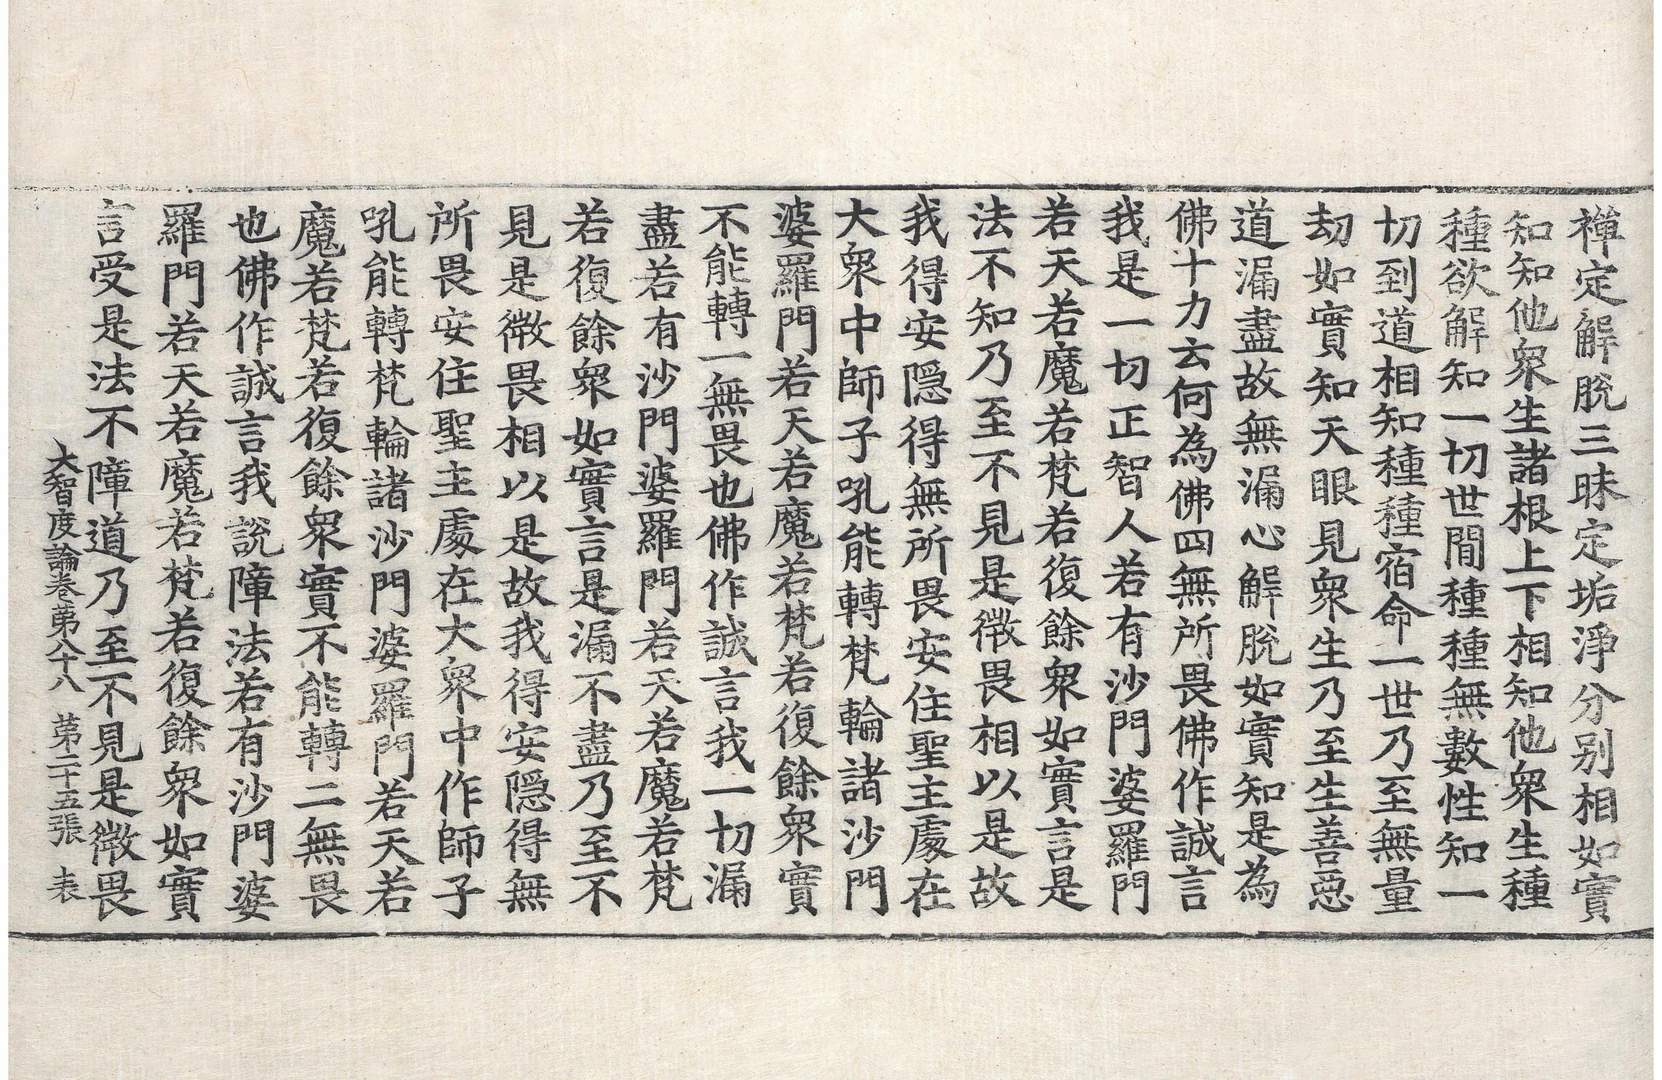 禅定解脫三昧定垢淨分別相如實
知知他衆生諸根上下相知他衆生種
種欲解知一切世間種種無數性知一
切到道相知種種宿命一世乃至無量
劫如實知天眼見衆生乃至生善惡
道漏盡故無漏心解脫如實知是為
佛十力云何為佛四無所畏佛作誠言
我是一切正智人若有沙門婆羅門
若天若魔若梵若復餘衆如實言是
法不知乃至不見是微畏相以是故
我得安隱得無所畏安住聖主處在
大衆中師子吼能轉梵輪諸沙門
婆羅門若天若魔若梵若復餘衆實
不能轉一無畏也佛作誠言我一切漏
盡若有沙門婆羅門若天若魔若梵
若復餘衆如實言是漏不盡乃至不
見是微畏相以是故我得安隱得無
所畏安住聖主處在大衆中作師子
吼能轉梵輪諸沙門婆羅門若天若
魔若梵若復餘衆實不能轉二無畏
也佛作誠言我說障法若有沙門婆
羅門若天若魔若梵若復餘衆如實
言受是法不障道乃至不見是微畏
大智度論卷第八十八 第二十五張 表